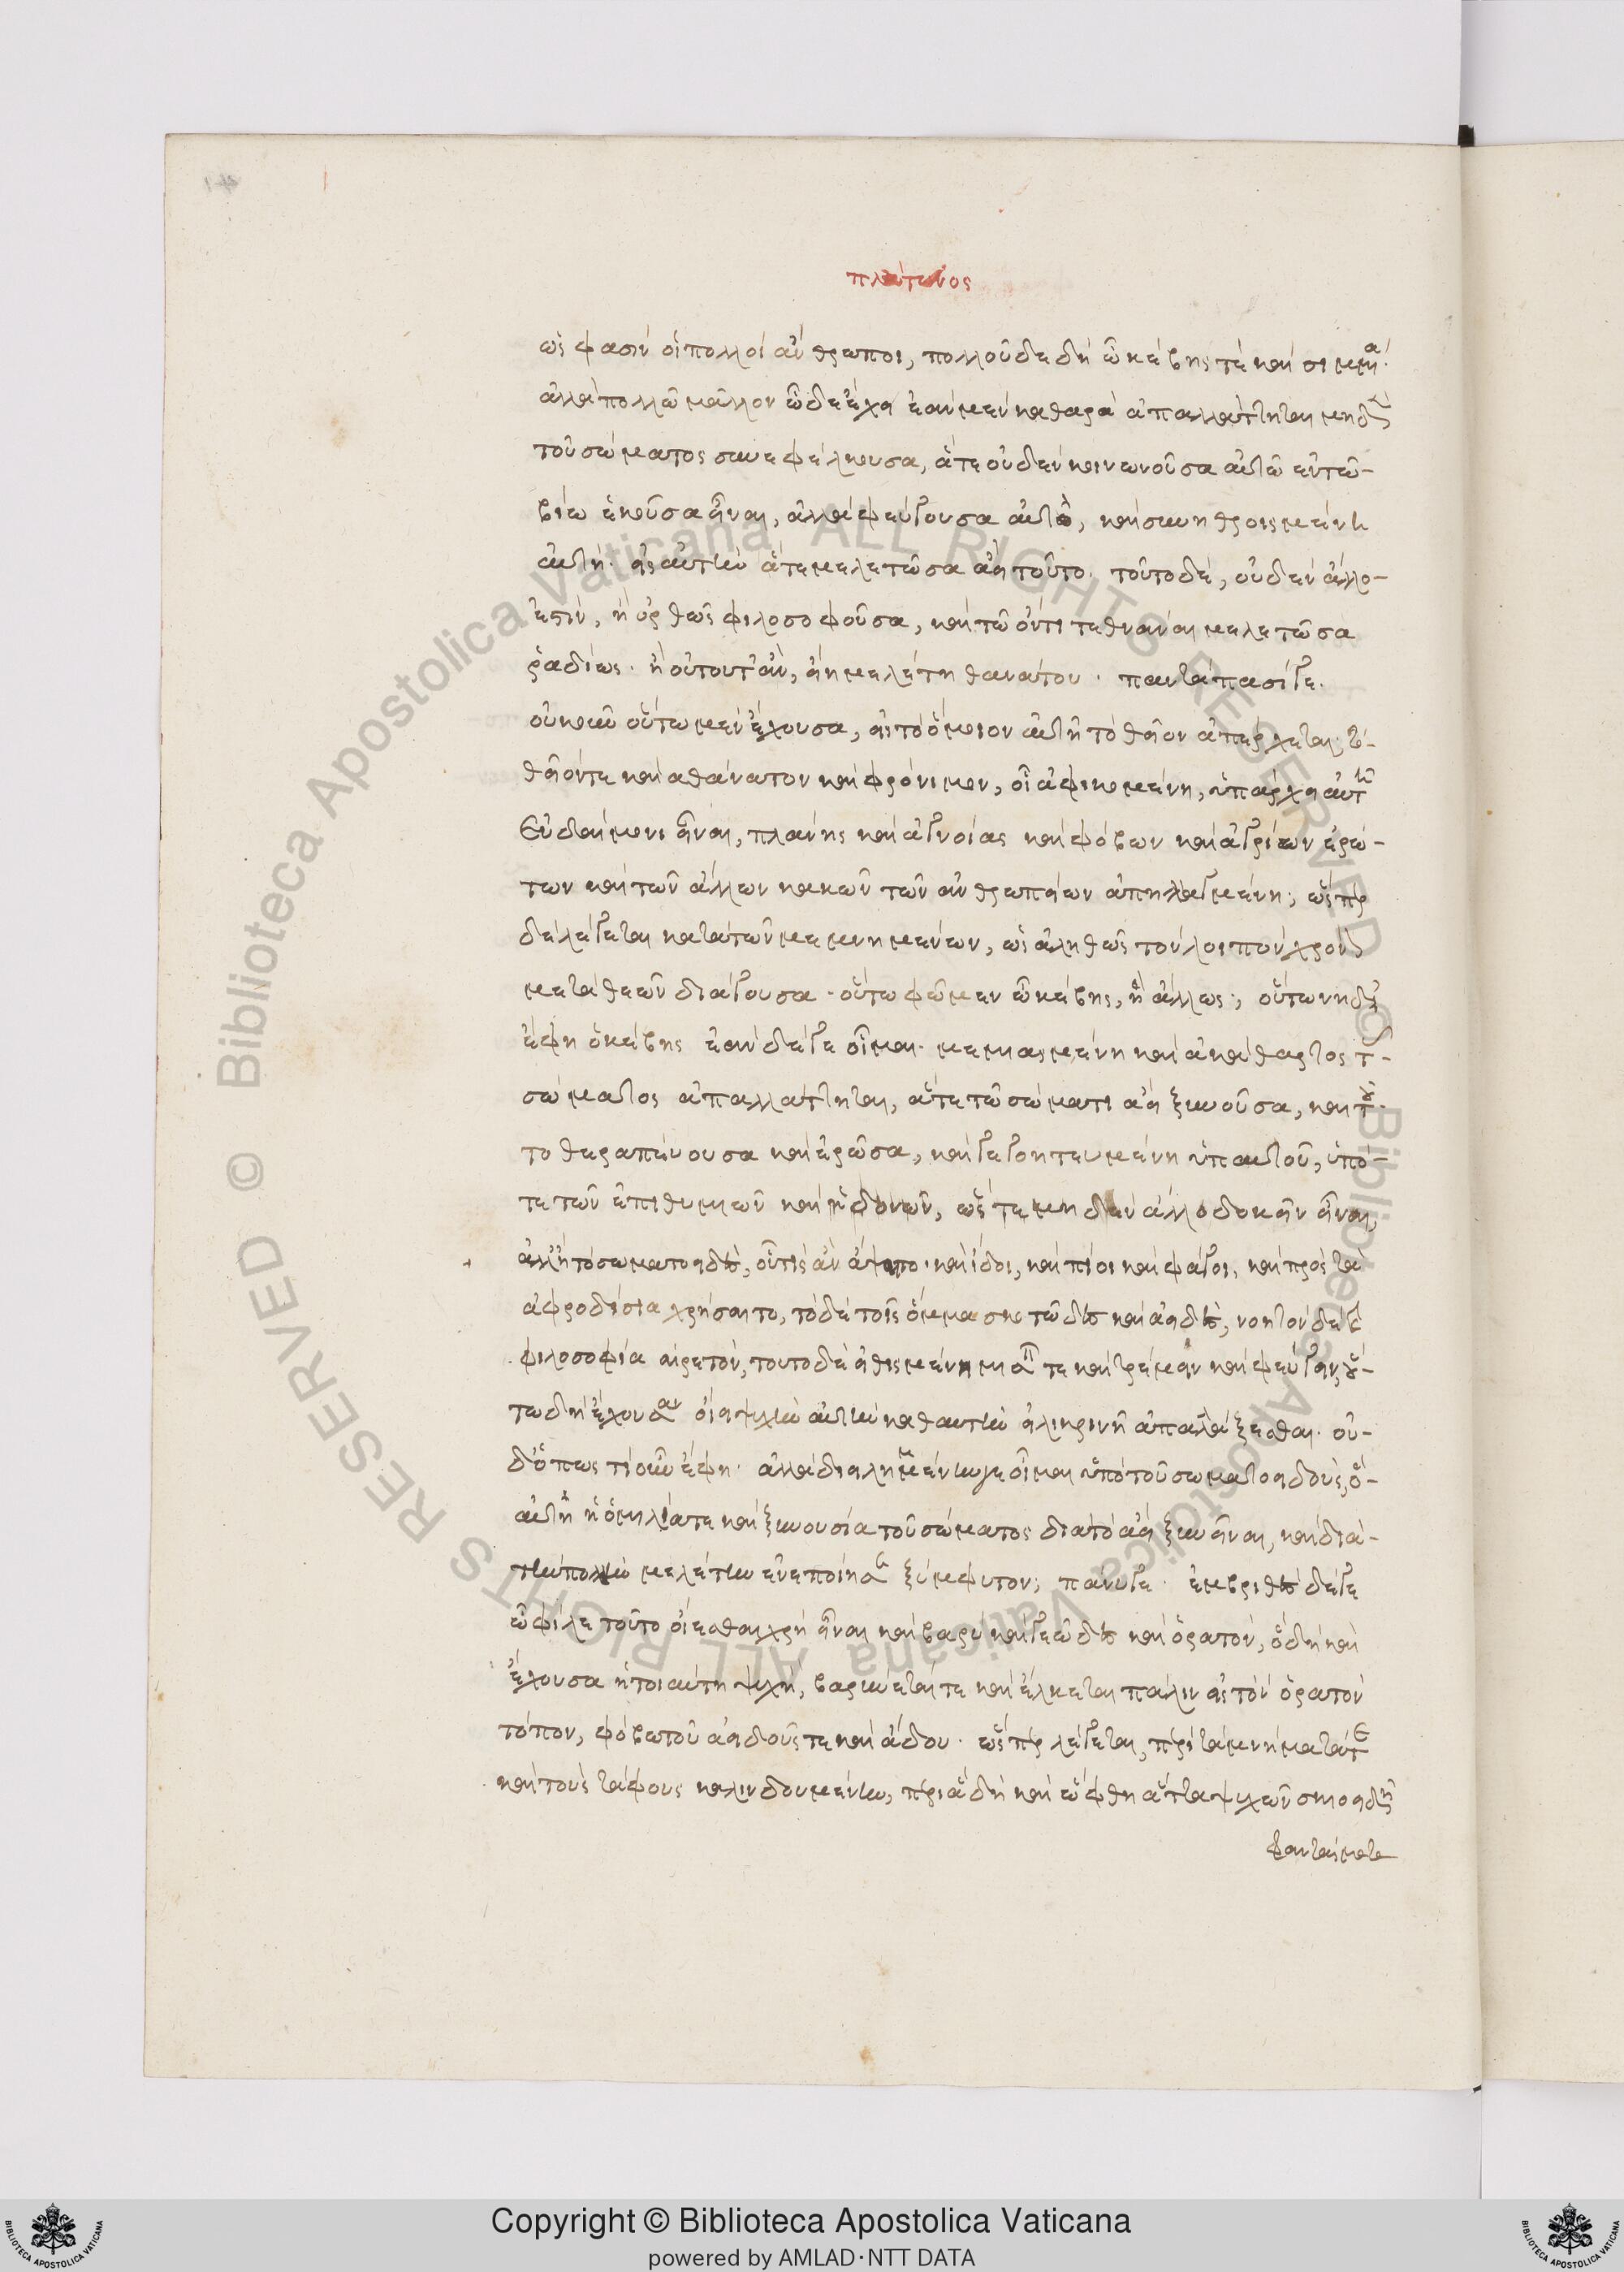 πλάτωνος
ὥς φασιν οἱ πολλοὶ ἄνθρωποι, πολλοῦ δε δὴ ὦ κέβης τὲ καὶ σιμμία·
ἀλλὰ πολλῶ μᾶλλον ὧδε ἔχει ἐὰν μὲν καθαρὰ ἀπαλλάττηται μηδὲν
τοῦ σώματος συνεφέλκουσα, ἅτε οὐδὲν κοινωνοῦσα αὐτῶ ἐν τῶ
βίω ἑκοῦσα εἶναι, ἀλλὰ φεύγουσα αὐτὸ, καὶ συνηθροισμένη
αὐτὴ εἰς αὑτὴν ἅτε μελετῶσα ἀεὶ τοῦτο. τοῦτο δὲ, οὐδὲν ἄλλο
ἐστὶν, ἢ ὀρθῶς φιλοσοφοῦσα, καὶ τῶ ὄντι τεθνάναι μελετῶσα
ῥαδίως· ἢ οὐ τοῦτ' ἂν, εἴη μελέτη θανάτου· παντάπασί γε.
οὐκοῦν οὕτω μὲν ἔχουσα, εἰς τὸ ὅμοιον αὐτῆ τὸ θεῖον ἀπέρχεται· τὸ
θεῖόν τε καὶ ἀθάνατον καὶ φρόνιμον, οἷ ἀφικομένη, ὑπάρχει αὐτῆ
Εὐδαίμονι εἶναι, πλάνης καὶ ἀγνοίας καὶ φόβων καὶ ἀγρίων ἐρώ-
των καὶ τῶν ἄλλων κακῶν τῶν ἀνθρωπείων ἀπηλλαγμένη; ὥσπερ
δὲ λέγεται κατὰ τῶν μεμυημένων, ὡς ἀληθῶς τὸν λοιπὸν χρόνον
μετὰ θεῶν διάγουσα· οὕτω φῶμεν ὦ κέβης, ἢ ἄλλως; οὕτω νὴ δί'
ἔφη ὁ κέβης ἐὰν δέ γε οἶμαι· μεμιασμένη καὶ ἀκάθαρτος τοῦ
σώματος ἀπαλλάττηται, ἅτε τῶ σώματι ἀεὶ ξυνοῦσα, καὶ τοῦ-
το θεραπεύουσα καὶ ἐρῶσα, καὶ γεγοητευμένη ὑπ' αὐτοῦ, ὑπό
τε τῶν ἐπιθυμιῶν καὶ ἡδονῶν, ὥστε μηδὲν ἄλλο δοκεῖν εἶναι,
ἀλλ' ἢ τὸ σωματοειδὲς, οὗ τις ἂν ἅψαιτο καὶ ἴδοι, καὶ πίοι καὶ φάγοι, καὶ πρὸς τὰ
ἀφροδίσια χρήσαιτο, τὸ δὲ τοῖς ὄμμασι σκοτῶδες καὶ ἀειδὲς, νοητὸν δὲ καὶ
φιλοσοφία αἱρετὸν, τοῦτο δὲ εἰθισμένη μισεῖν τε καὶ τρέμειν καὶ φεύγειν, οὕ-
τω δὴ ἔχουσαν οἴει ψυχὴν αὐτὴν καθ' αὑτὴν εἰλικρινῆ ἀπαλλάξεσθαι· οὐ-
δ' ὅπως τιοῦν ἔφη· ἀλλὰ διειλημμένην γε οἶμαι ὑπὸ τοῦ σωματοειδοῦς, ὃ
αὐτῆ ἡ ὁμιλία τε καὶ ξυνουσία τοῦ σώματος διὰ τὸ ἀεὶ ξυνεῖναι, καὶ διὰ
τὴν πολλὴν μελέτην ἐνεποίησε ξύμφυτον; πάνυ γε· ἐμβριθὲς δέ γε
ὦ φίλε τοῦτο οἴεσθαι χρὴ εἶναι καὶ βαρὺ καὶ γεῶδες καὶ ὁρατὸν, ὃ δὴ καὶ
ἔχουσα ἡ τοιαύτη ψυχὴ, βαρύνεταί τε καὶ ἕλκεται πάλιν εἰς τὸν ὁρατὸν
τόπον, φόβω τοῦ ἀειδοῦς τε καὶ ἅδου· ὥσπερ λέγεται, περὶ τὰ μνήματά τε
καὶ τοὺς τάφους καλινδουμένη, περὶ ἃ δὴ καὶ ὤφθη ἄττα ψυχῶν σκιοειδῆ
φαντάσματα